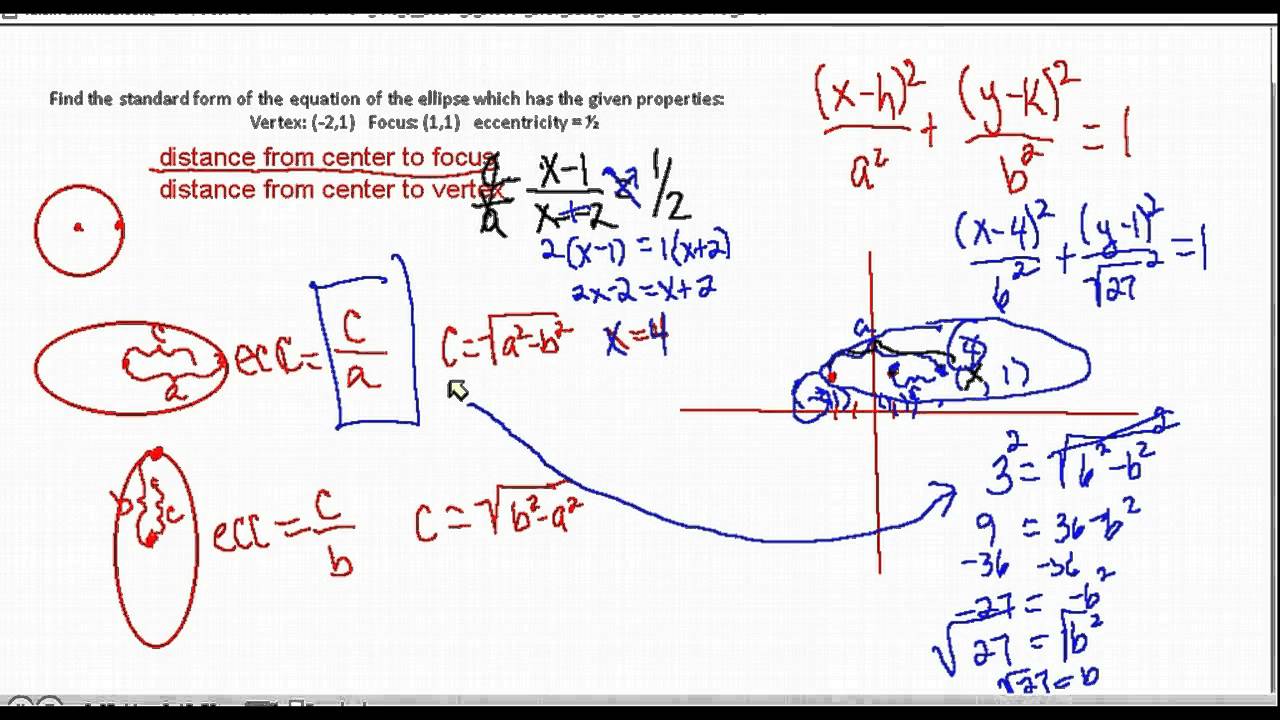 Find the standard form of the equation of the ellipse which has the given properties:
Vertex: (-2,1) Focus: (1,1) eccentricity = ½
distance from center to focus
distance from center to vertex
x-1
x+2
1/2
2(x-1) = 1(x+2)
2x-2 = x+2
x=4
(x-h)²/a² + (y-k)²/b² = 1
(x-4)²/6² + (y-1)²/√27² = 1
c
a
ecc = c/a
c = √a²-b²
b
c
ecc = c/b
c = √b²-a²
a
4
(x, 1)
3² = √6²-b² ²
9 = 36-b²
-36 -36
-27 = -b²
√27 = √b²
√27 = b